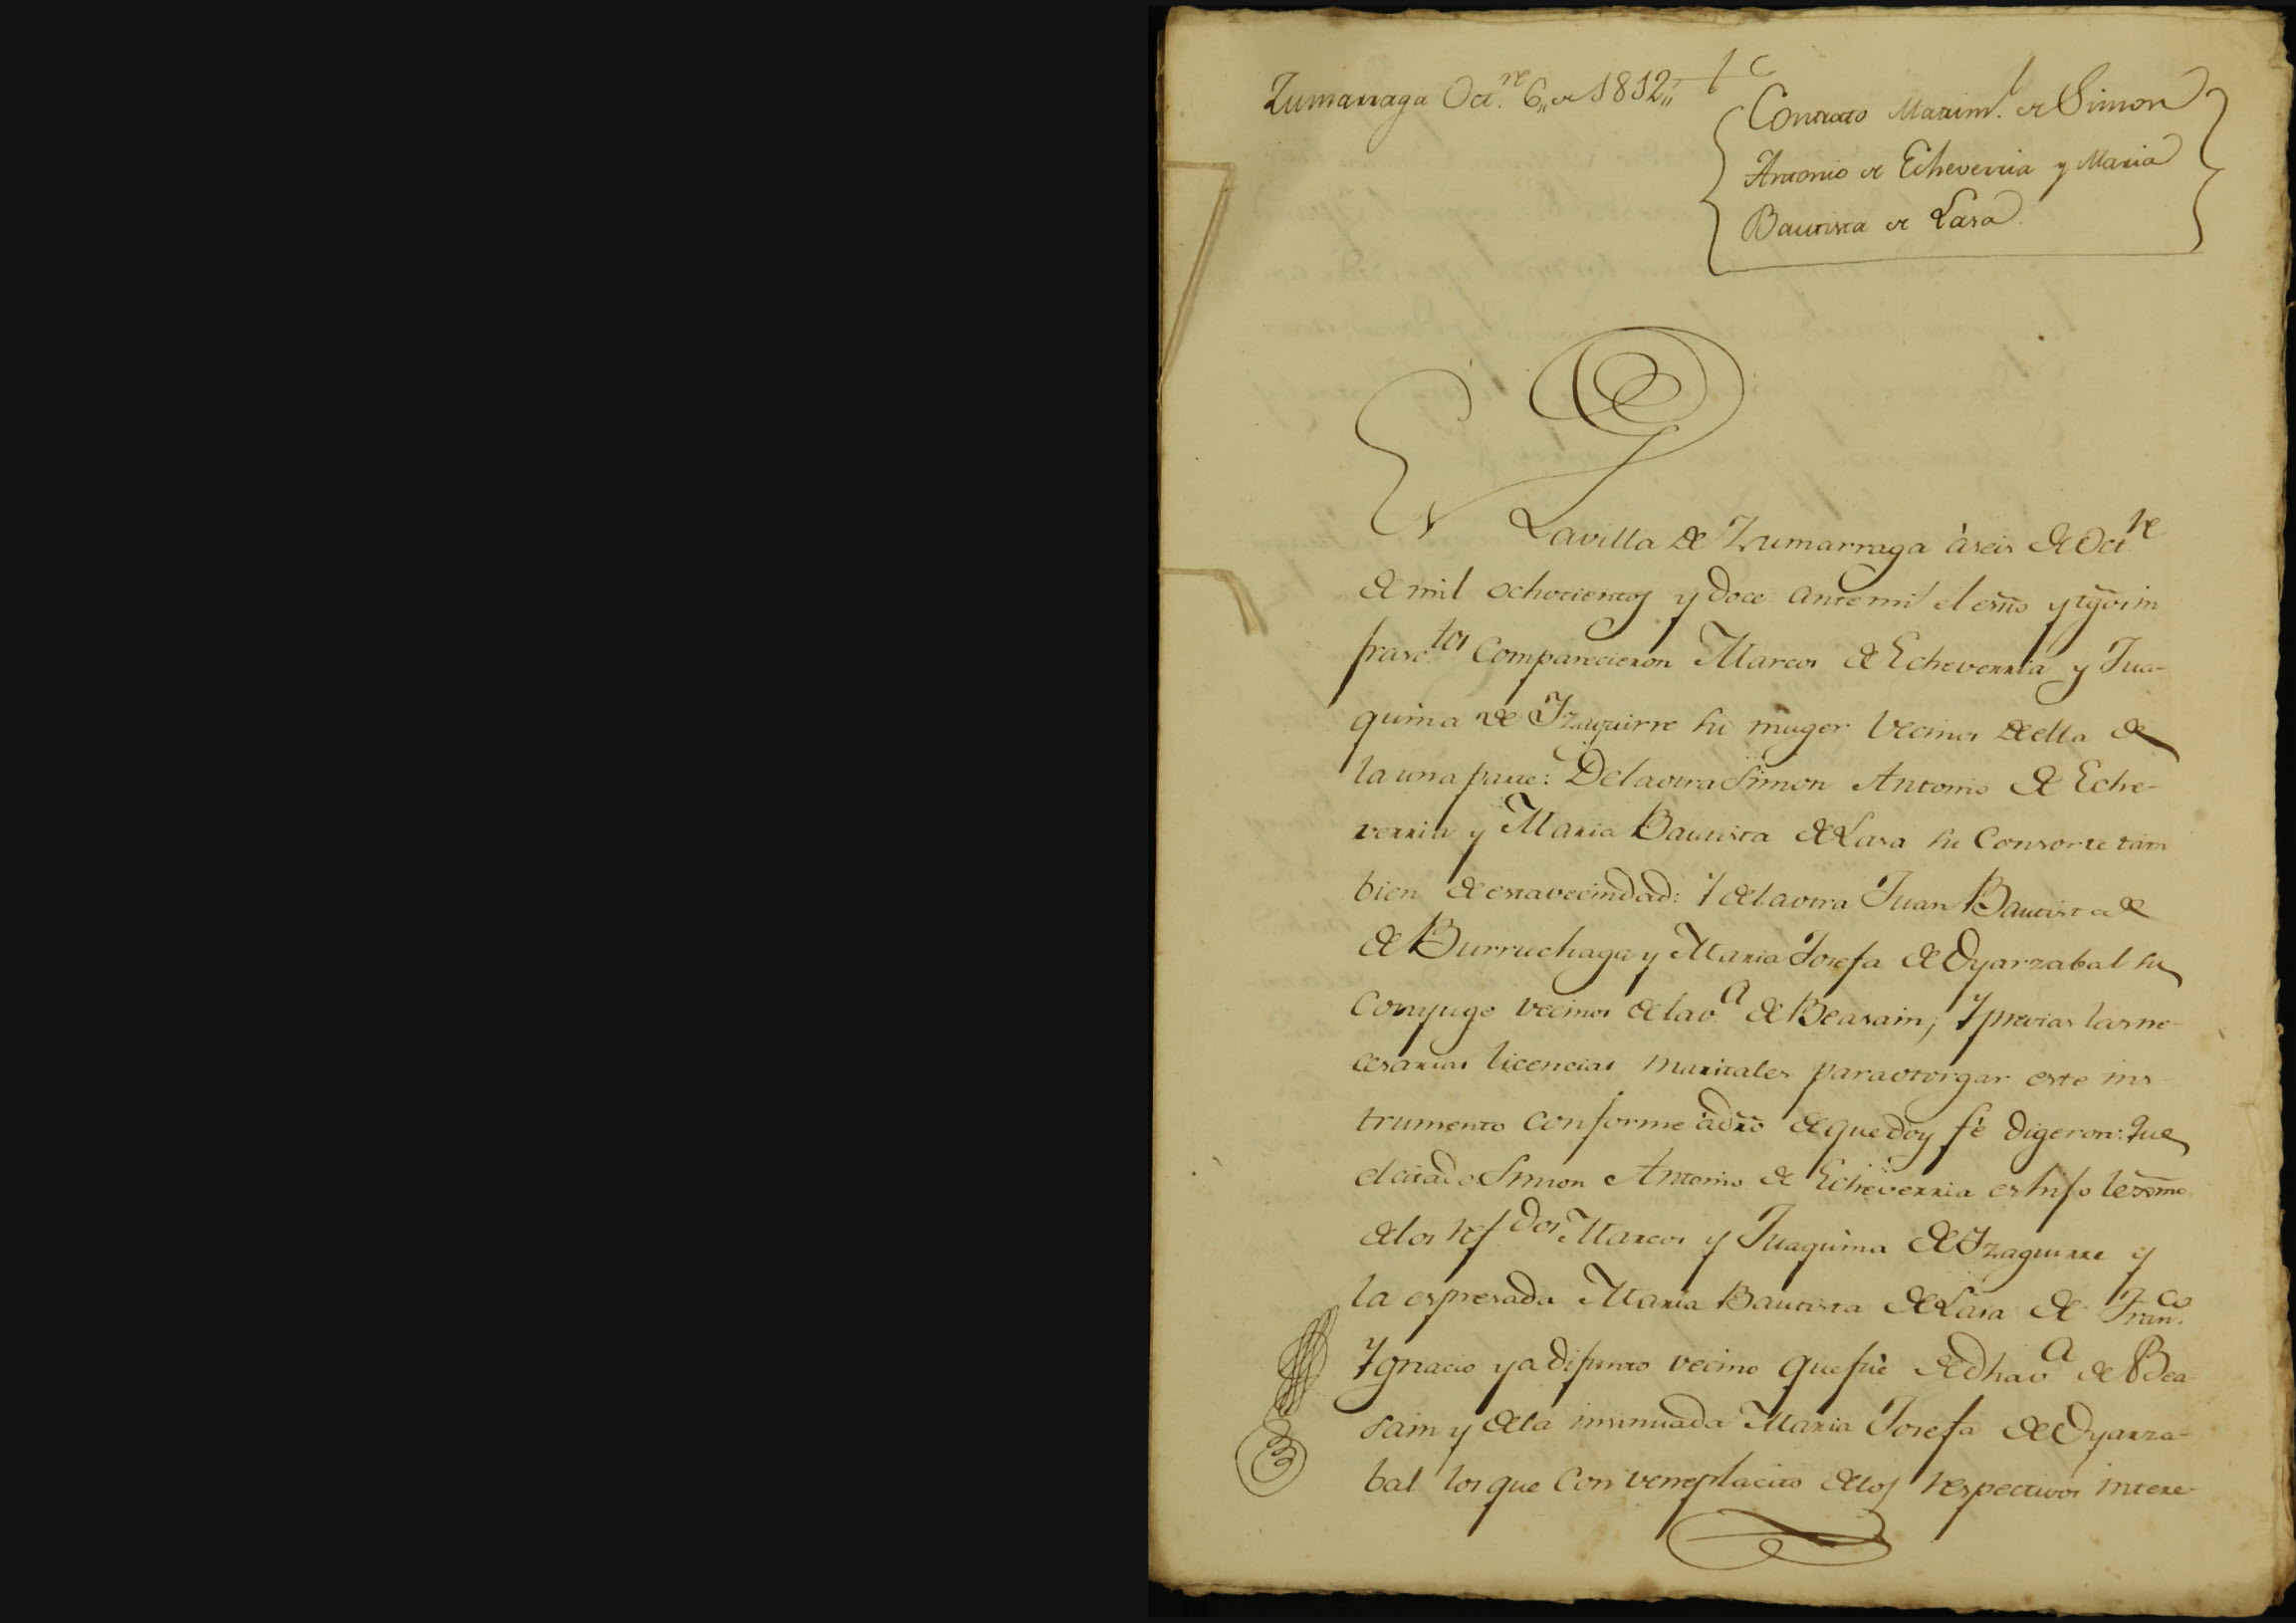 Zumarraga Oct.re 6,, de 1812,,
Contrato Matrim.l de Simon
Antonio de Echeverria y Maria
Bautista de Lasa
En La villa de Zumarraga à seis de Oct.re
de mil ochocientos y doce ante mi el esño y tgōs in
frasc.tos Comparecieron Marcos de Echeverria y Jua-
quina de Yzaguirre su muger Vecinos de ella de
la una parte: De la otra Simon Antonio de Eche-
verria y Maria Bautista de Lasa su Consorte tam
bien de esta vecindad: Y de la otra Juan Bautista de
de Burruchaga y Maria Josefa de Oyarzabal su
Conyuge vecinos de la v.a de Beasain; Y previas las ne-
cesarias licencias maritales para otorgar este ins-
trumento conforme à dr̃o de que doy fè digeron: Que
el citado Simon Antonio de Echeverria es hijo lex̃mo
de los ref.dos Marcos y Juaquina de Yzaguirre y
la espresada Maria Bautista de Lasa de Fran.co
Ygnacio ya difunto vecino que fuè de dha v.a de Bea-
sain y de la insinuada Maria Josefa de Oyarza-
bal los que con veneplacito de los respectivos intere-